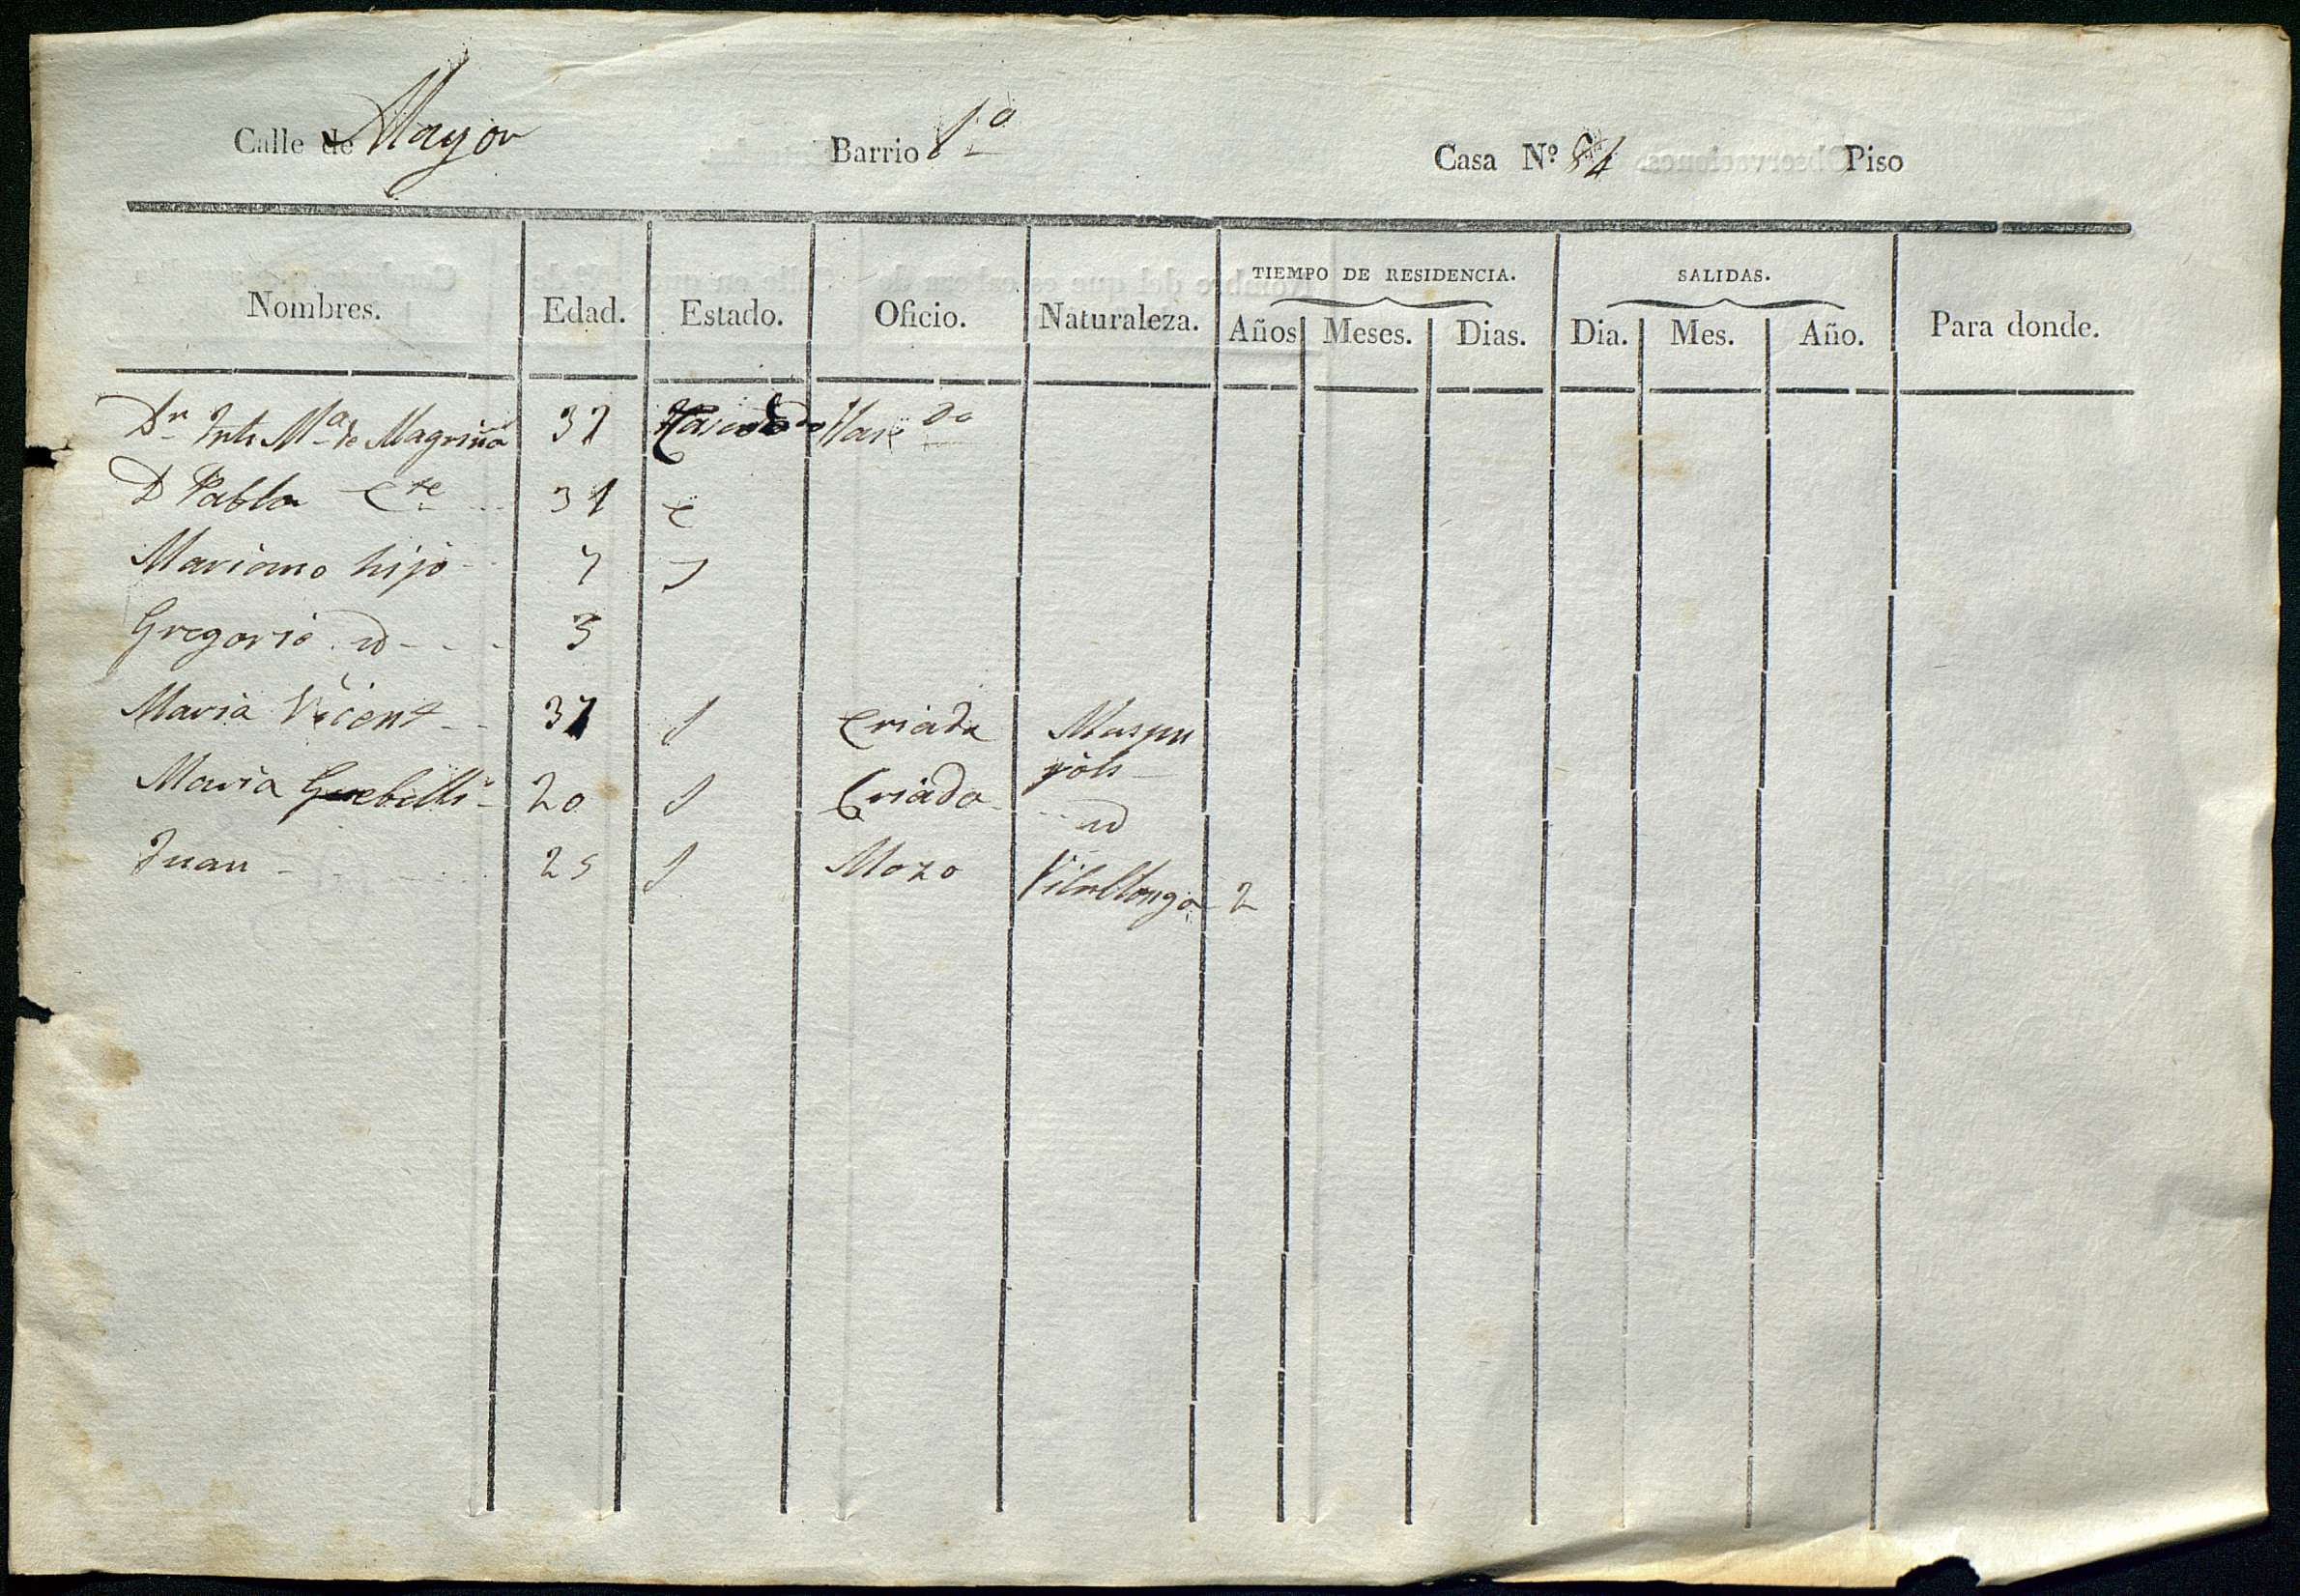 Calle de Mayor Barrio 1º Casa Nº 84 Piso
TIEMPO DE RESIDENCIA. SALIDAS.
Nombres. Edad. Estado. Oficio. Naturaleza. Años Meses. Dias. Dia. Mes. Año. Para donde.
Dn Mª de Magriña 37 Hasdo
D Pabla Cte 31 C
Mariano hijo 7 S
Gregorio id 3
Maria Vicent 37 S Criada Maspu
jols
Maria 20 S Criada id
Juan 25 S Mozo Vilallonga 2